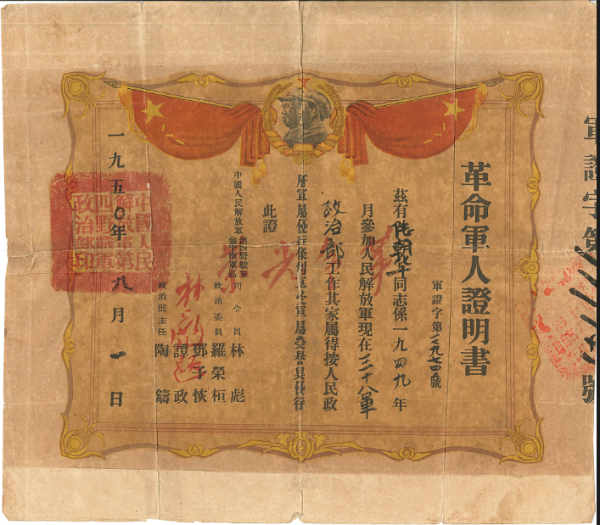 軍證字第
號
革命軍人證明書
軍證字第二九七四號
茲有 同志係一九四九年
月參加人民解放軍現在三十八軍
政治部工作其家屬得按人民政
府軍屬優待條例享受軍屬榮譽與優待
此證
光榮
中國人民解放軍第四野戰軍
司令員林彪
政治委員羅榮桓
鄧子恢
譚政
政治部主任陶鑄
一九五〇年八月一日
中國人民
解放軍第
四野戰軍
政治部印